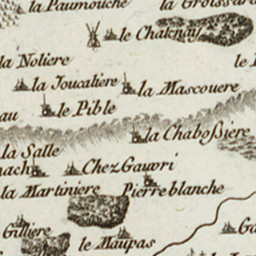 la Paumouche
la Groissard
le Chatenay
la Notiere
la Joucatiere
la Mascouere
le Pible
la Chaboßiere
la Salle
Chez Gauvri
la Martiniere
Pierre blanche
Gilliere
le Maupas